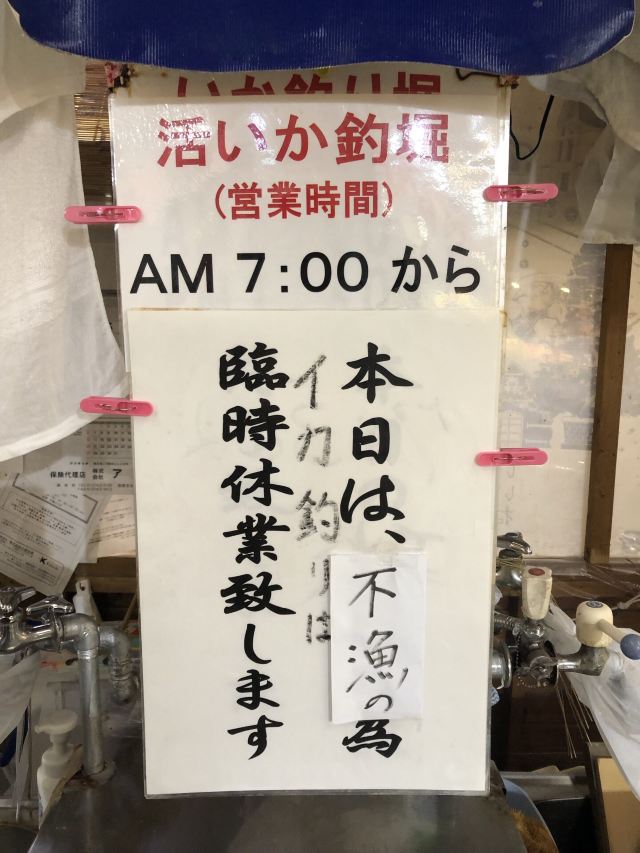 いか釣り堀
活いか釣堀
(営業時間)
AM 7:00 から
本日は、不漁の為
イカ釣りは
臨時休業致します
保険代理店 株式会社 ア